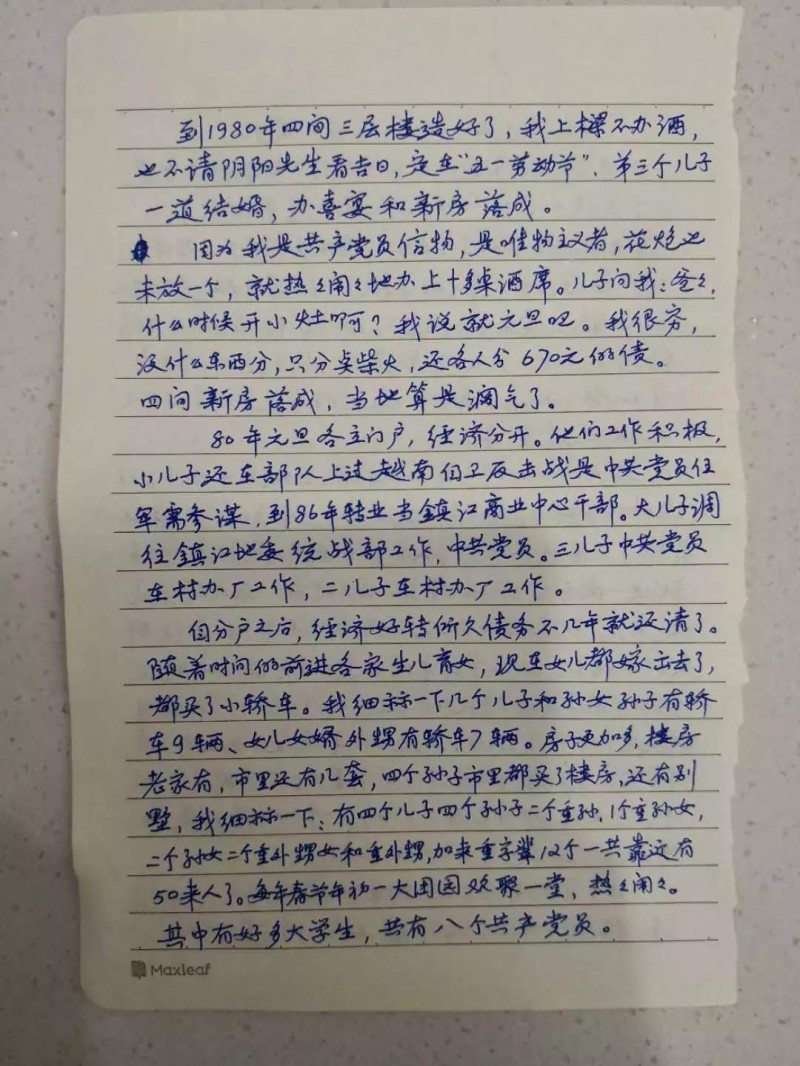 到1980年四间三层楼造好了，我上樑不办酒，
也不请阴阳先生看吉日，定在“五一劳动节”．第三个儿子
一道结婚，办喜宴和新房落成。
因为我是共产党员信物，是唯物主义者，花炮也
未放一个，就热々闹々地办上十多桌酒席。儿子问我：爸々，
什么时候开小灶啊？我说就元旦吧。我很穷，
没什么东西分，只分点柴火，还各人分670元的债。
四间新房落成，当地算是阔气了。
80年元旦各立门户，经济分开。他们工作积极，
小儿子还在部队上过越南自卫反击战是中共党员任
军需参谋，到86年转业当鎮江商业中心干部。大儿子调
往鎮江地委统战部工作，中共党员。三儿子中共党员
在村办厂工作，二儿子在村办厂工作。
自分户之后，经济好转所欠债务不几年就还清了。
随着时间的前进各家生儿育女，现在女儿都嫁出去了，
都买了小轿车。我细标一下几个儿子和孙女孙子有轿
车9辆、女儿女婿外甥有轿车7辆。房子更加多，楼房
老家有，市里还有几套，四个孙子市里都买了楼房，还有别
墅，我细标一下：有四个儿子四个孙子二个重孙，1个重孙女，
二个孙女二个重外甥女和重外甥，加来重字辈12个一共靠近有
50来人了。每年春节年初一大团园欢聚一堂，热々闹々。
其中有好多大学生，共有八个共产党员。
Maxleaf